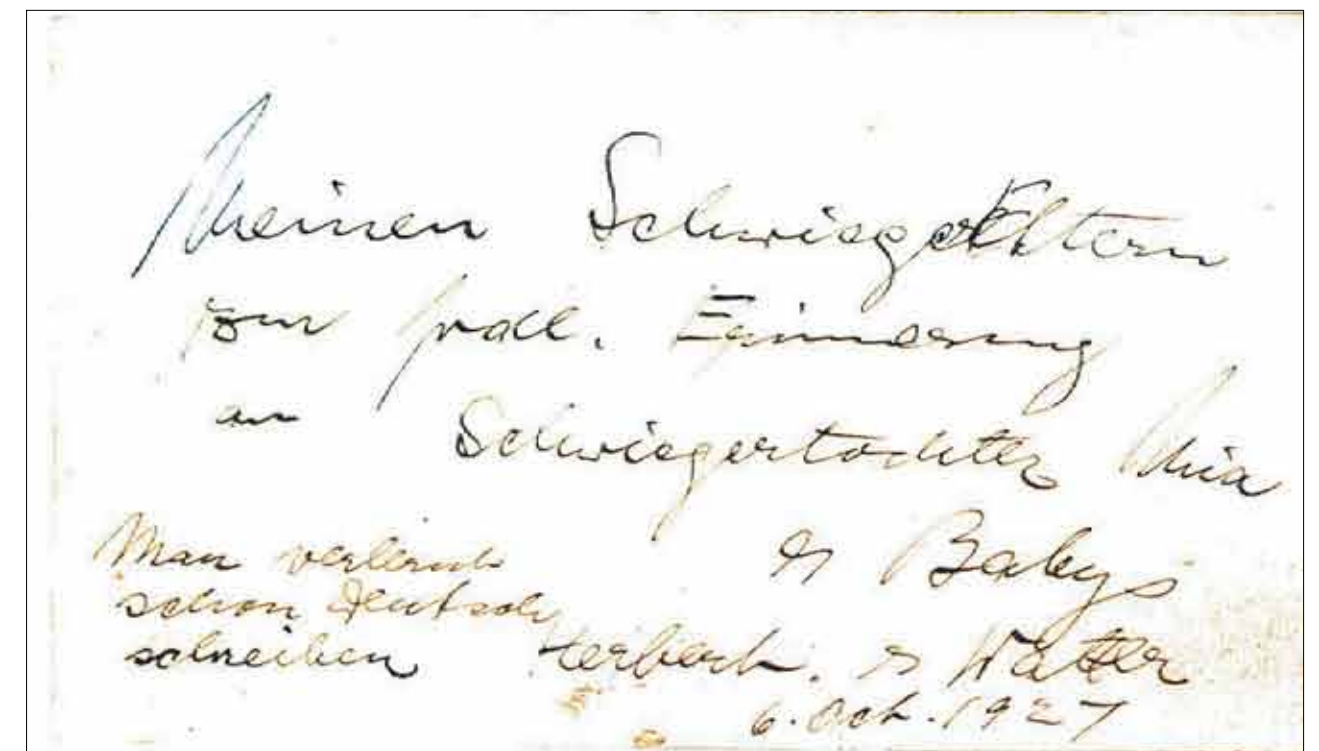 Meinen Schwiegereltern
zur frdl. Erinnerung
an Schwiegertochter Mia
& Babys
Herbert. & Walter
6. Oct. 1927
Man verlernt
schon deutsch
schreiben